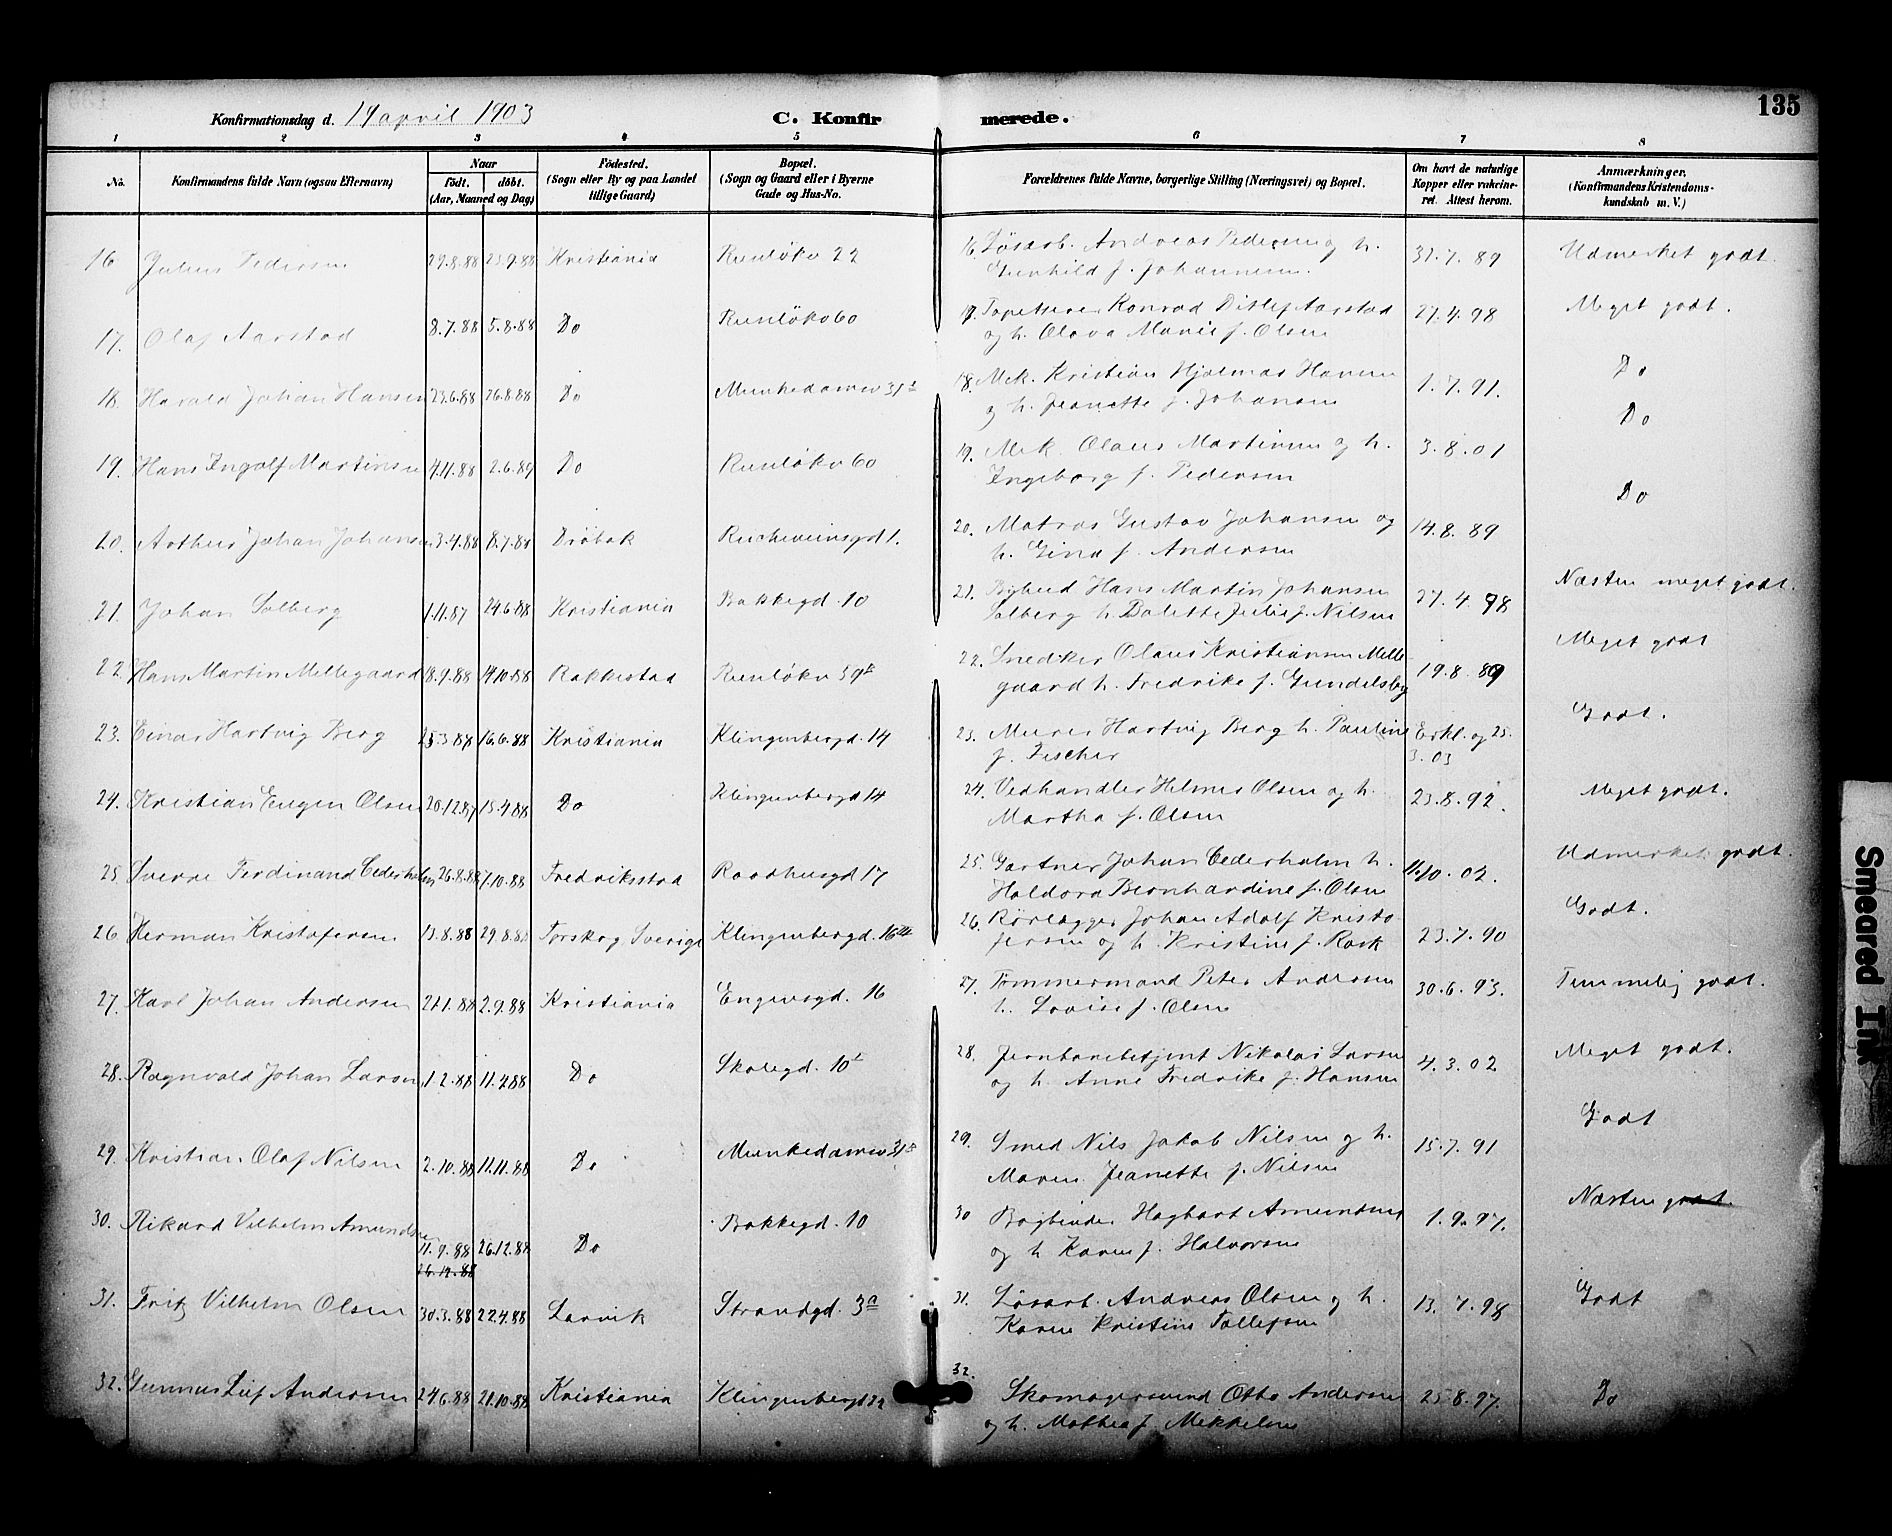 135
Konfirmationsdag d. 19 april 1903
C. Konfirmerede.
1 2 3 4 5 6 7 8
No.
Konfirmandens fulde Navn (ogsaa Efternavn)
Naar
födt. döbt.
(Aar, Maaned og Dag)
Födested.
(Sogn eller By og paa Landet
tillige Gaard)
Bopæl.
(Sogn og Gaard eller i Byerne
Gade og Hus-No.
Forældrenes fulde Navne, borgerlige Stilling (Næringsvei) og Bopæl.
Om havt de naturlige
Kopper eller vakcine-
ret. Attest herom.
Anmærkninger.
(Konfirmandens Kristendoms-
kundskab m. V.)
16 Julius Pedersen 29.8.88 23.9.88 Kristiania Ruseløkv 22
16. Løsarb. Andreas Pedersen og h.
Gunhild f. Johannesen. 31.7.89 Udmerket godt.
17. Olaf Aarstad 8.7.88 5.8.88 Do Ruseløkv 60
17. Tapetserer Konrad Ditlef Aarstad
og h. Olava Marie f. Olsen 27.4.98 Meget godt.
18. Harald Johan Hansen 23.6.88 26.8.88 Do Munkedamsv 31
18. Mek. Kristian Hjalmar Hansen
og h. Jeanette f. Johansen 1.7.91. Do
19. Hans Ingolf Martinsen 4.11.88 2.6.89 Do Ruseløkv 60
19. Mek. Olaus Martinsen og h.
Ingeborg f. Pedersen 3.8.01 Do
20. Arthur Johan Johansen 3.4.88 8.7.88 Drøbak Reichweinsgd 1.
20. Matros Gustav Johansen og
h. Gina f. Andersen 14.8.89 Do
21. Johan Solberg 1.11.87 24.6.88 Kristiania Bakkegd. 10
21. Bybud Hans Martin Johansen
Solberg h. Dolette Julie f. Nilsen 27.4.98 Næsten meget godt.
22. Hans Martin Mellegaard 18.9.88 14.10.88 Rakkestad Ruseløkv 59
22. Snedker Olaus Kristiansen Melle
gaard h. Fredrike f. Gundelsby 19.8.89 Meget godt
23. Einar Hartvig Berg 23.3.88 16.6.88 Kristiania Klingenbergd. 14
23. Murer Hartvig Berg h. Pauline
f. Fischer Erkl. og 25.
3.03 Godt.
24. Kristian Eugen Olsen 20.12.87 15.4.88 Do Klingenbergd 14
24. Vedhandler Helmer Olsen og h.
Martha f. Olsen 23.8.92. Meget godt.
25. Sverre Ferdinand Cederholm 26.8.88 7.10.88 Fredriksstad Raadhusgd 17
25. Gartner Johan Cederholm h.
Haldora Bernhardine f. Olsen 11.10.02. Udmerket godt.
26 Herman Kristofersen 13.8.88 29.8.88 Forskog Sverige Klingenbergd. 16
26. Rørlægger Johan Adolf Kristo
fersen og h. Kristine f. Rask 23.7.90 Godt.
27. Karl Johan Andersen 21.1.88 2.9.88 Kristiania Engensgd. 16
27. Tømmermand Peter Andersen
h. Lovise f. Olsen 30.6.93. Temmelig godt.
28. Ragnvald Johan Larsen 1.2.88 11.4.88 Do Skolegd. 10
28. Jernbanebetjent Nikolai Larsen
og h. Anne Fredrike f. Hansen 4.3.02 Meget godt.
29. Kristian Olaf Nilsen 2.10.88 11.11.88 Do Munkedamsv 31
29. Smed Nils Jakob Nilsen og h.
Maren Jeanette f. Nilsen 15.7.91 Godt
30. Rikard Vilhelm Amundsen 11.9.88 26.12.88 Do Bakkegd. 10
26.12.88
30 Bogbinder Hagbart Amundsen
og h. Karen f. Halvorsen 1.9.97. Næsten godt.
31. Fritz Vilhelm Olsen 30.3.88 22.4.88 Larvik Strandgd. 3a
31. Løsarb. Andreas Olsen og h.
Karen Kristine Tollefsen 13.7.98 Godt
32. Gunnar Leif Andersen 24.6.88 21.10.88 Kristiania Klingenbergd
32. Skomagersvend Otto Andersen
og h. Mathea f. Mekkelsen 25.8.97. Do
Smeared Ink